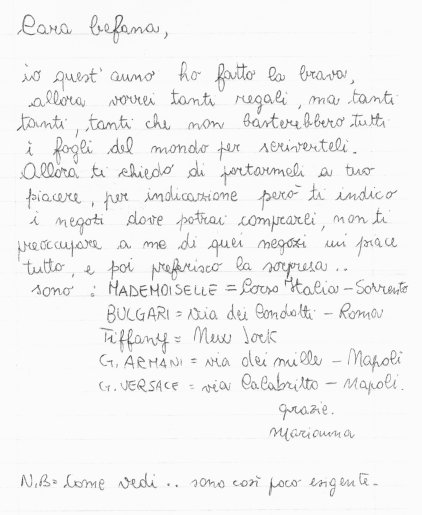 Cara befana,
io quest'anno ho fatto la brava,
allora vorrei tanti regali, ma tanti
tanti, tanti che non basterebbero tutti
i fogli del mondo per scriverteli.
Allora ti chiedo di portarmeli a tuo
piacere, per indicazione però ti indico
i negozi dove potrai comprarli, non ti
preoccupare a me di quei negozi mi piace
tutto, e poi preferisco la sorpresa..
sono: MADEMOISELLE = Corso Italia - Sorrento
BULGARI = via dei Condotti - Roma
Tiffany = New Jork
G. ARMANI = via dei mille - Napoli
G. VERSACE = via Calabritto - Napoli.
grazie.
Marianna
N.B = Come vedi .. sono così poco esigente.